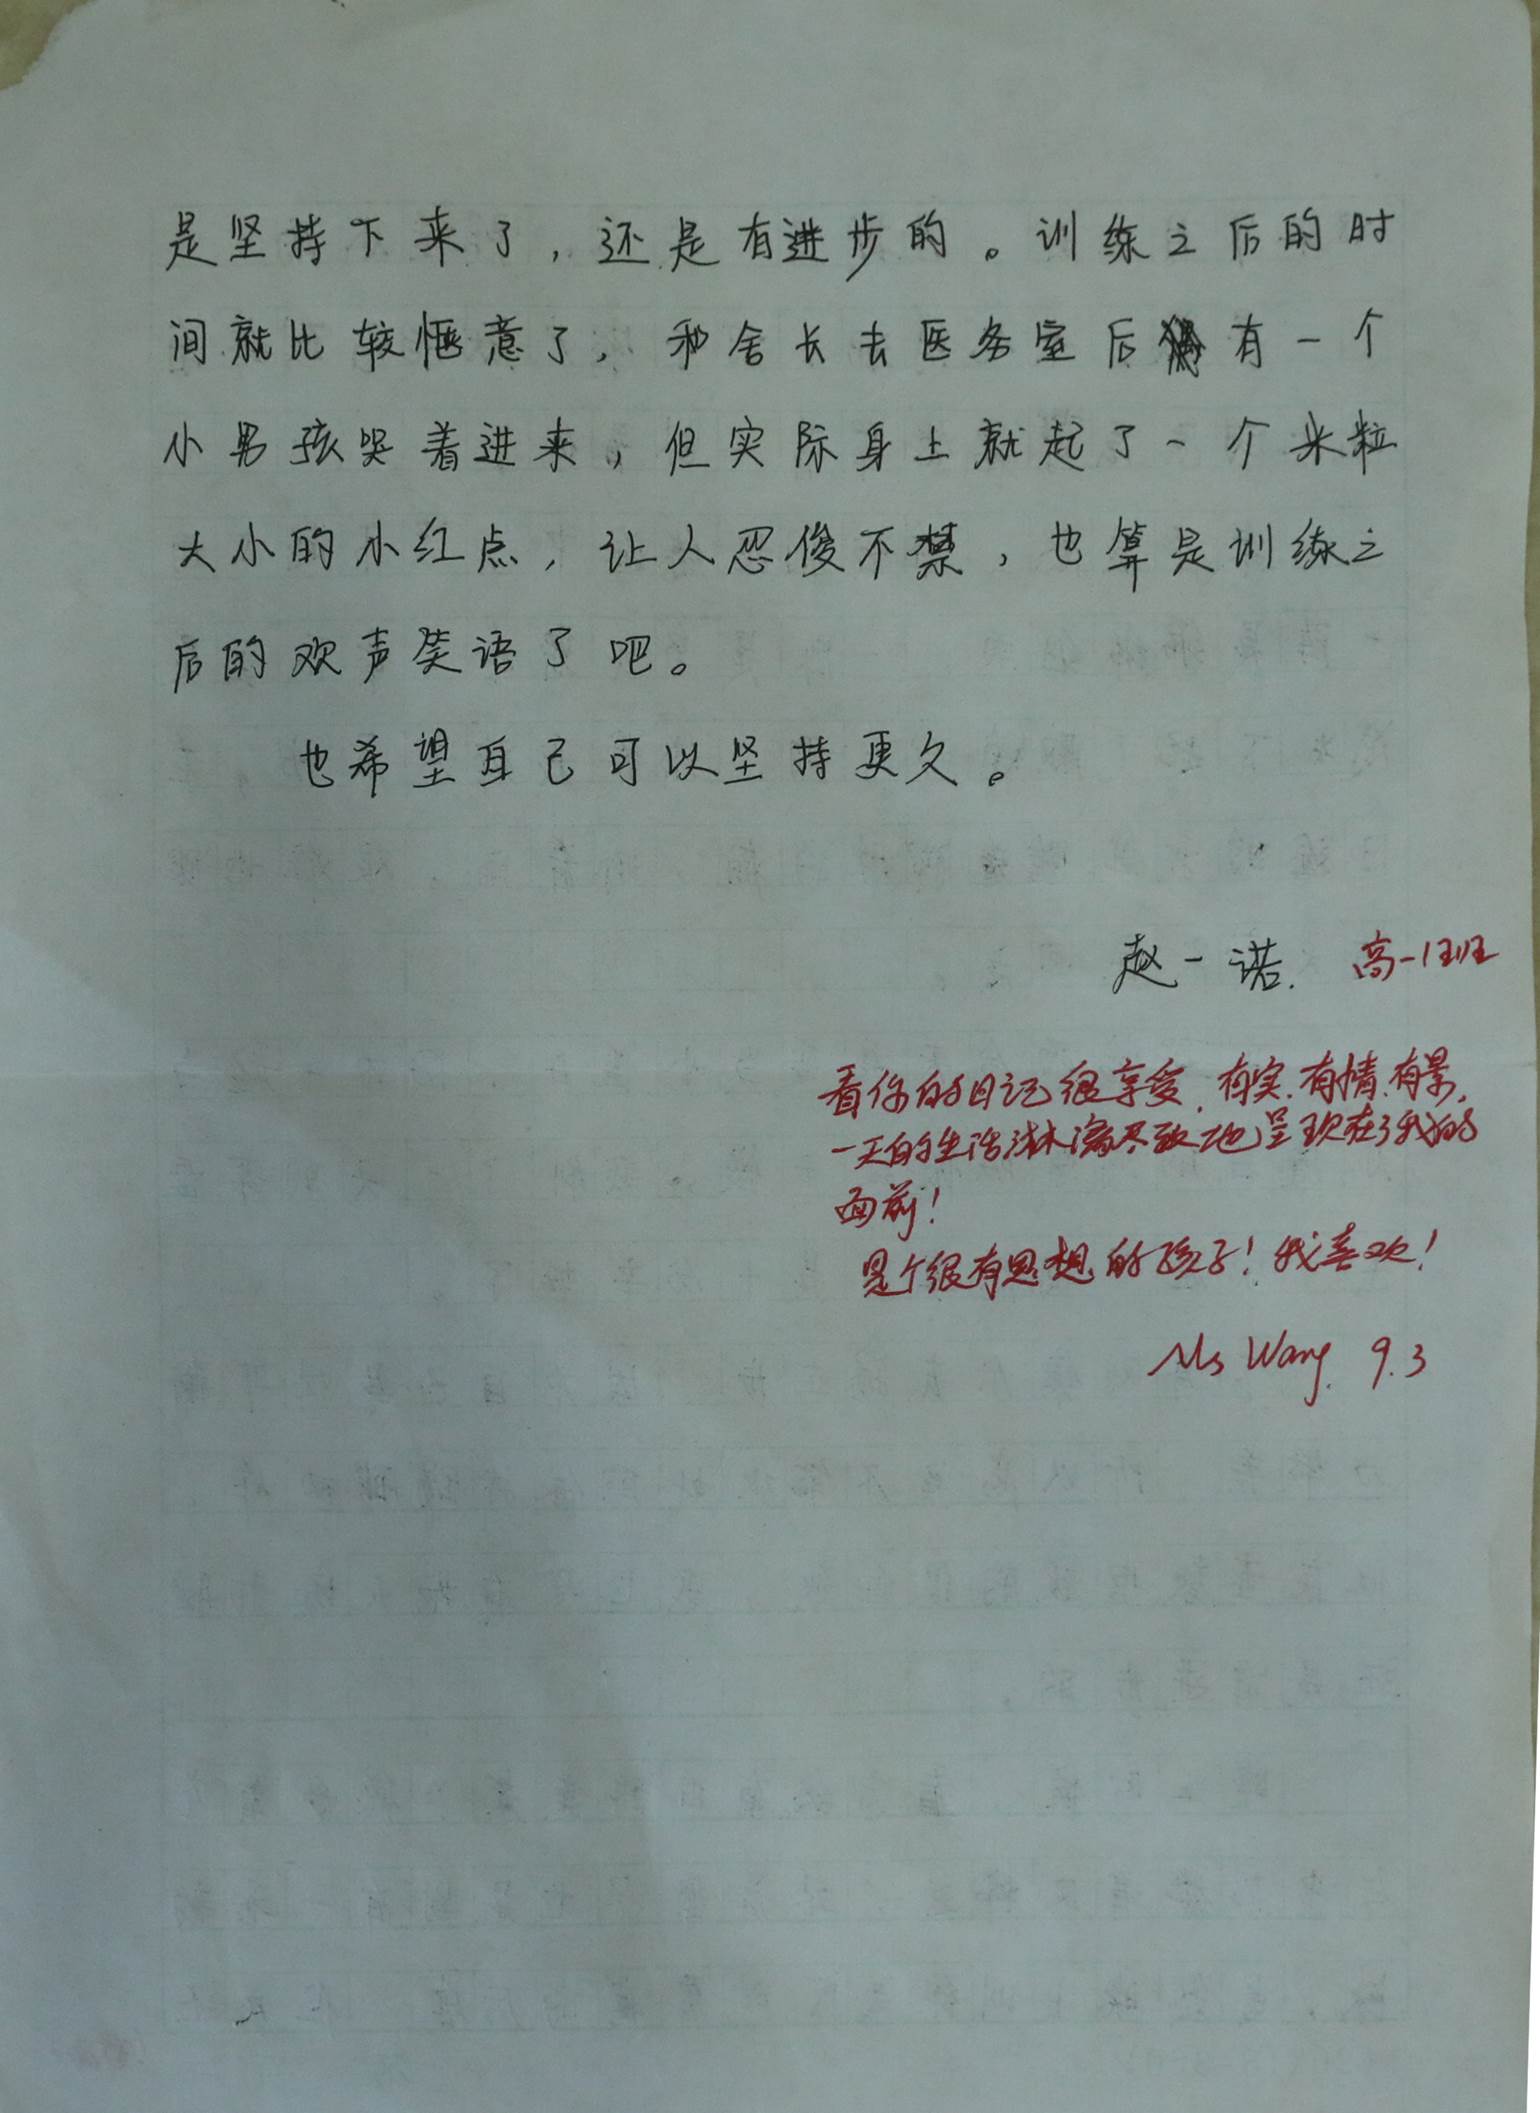 是坚持下来了，还是有进步的。训练之后的时
间就比较惬意了，和舍长去医务室后有一个
小男孩哭着进来，但实际身上就起了一个米粒
大小的小红点，让人忍俊不禁，也算是训练之
后的欢声笑语了吧。
也希望自己可以坚持更久。
赵一诺. 高一12班
看你的日记很享受，有实.有情.有景，
一天的生活淋漓尽致地呈现在了我的
面前！
是个很有思想的孩子！我喜欢！
Ms Wang. 9.3